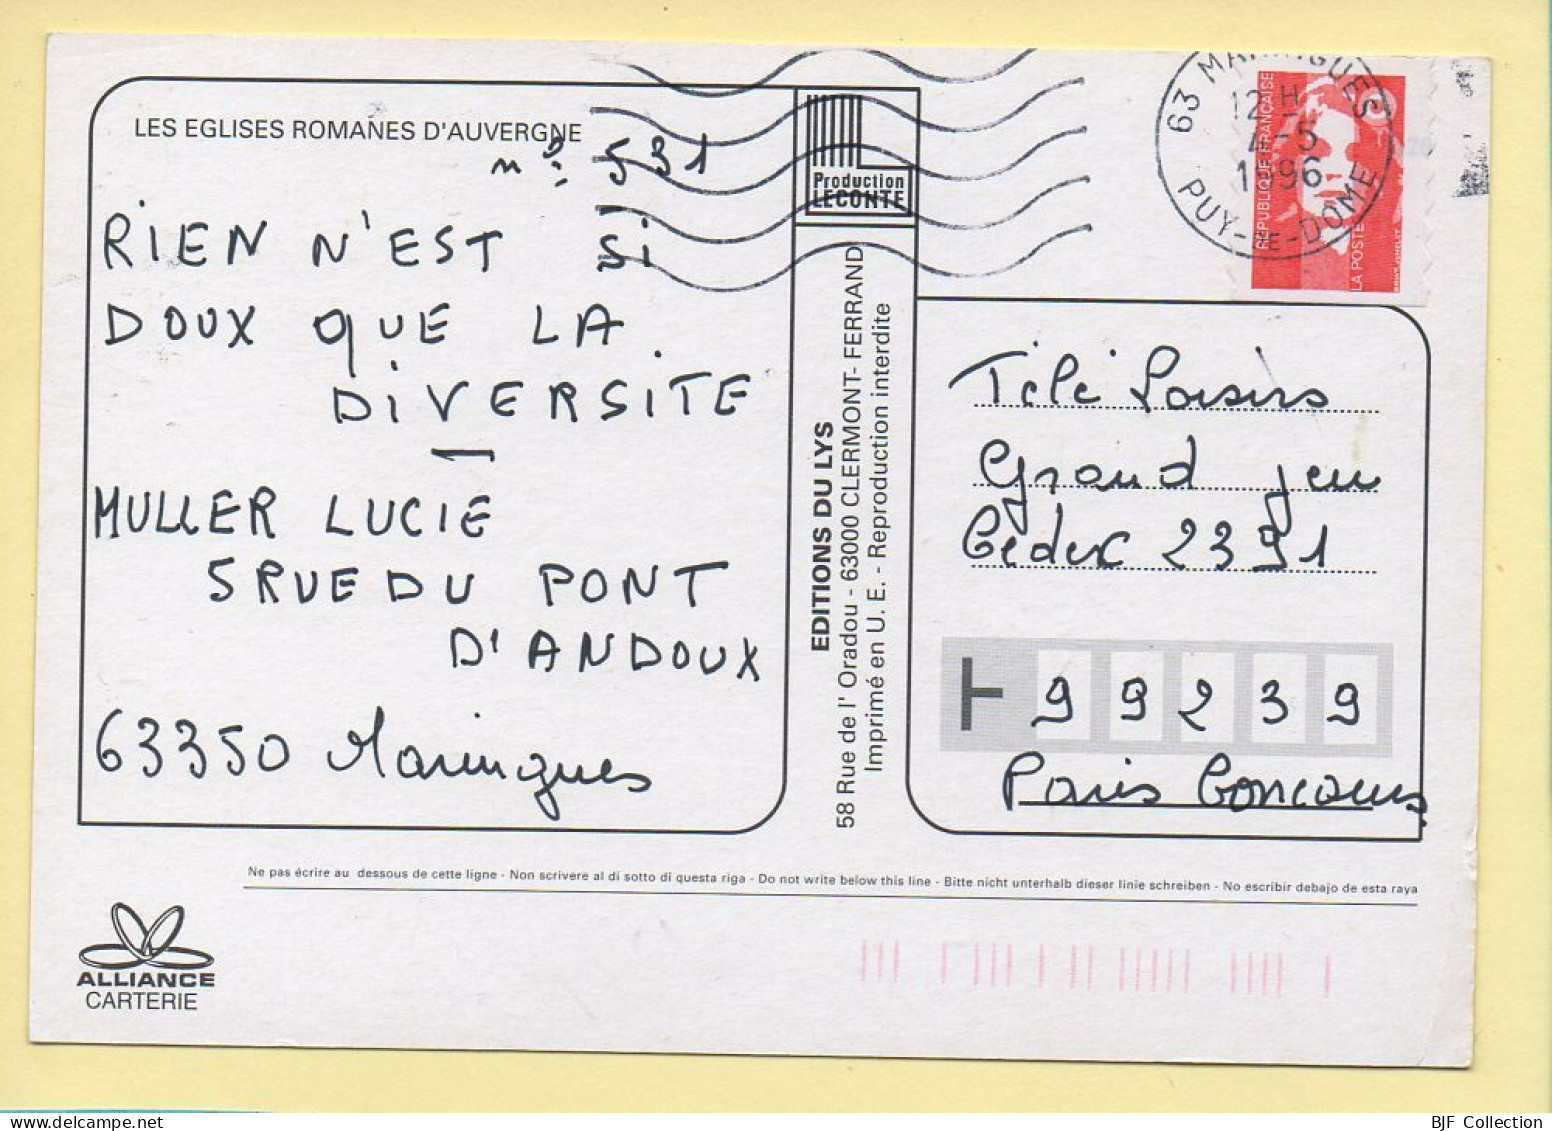 LES EGLISES ROMANES D'AUVERGNE
n°: 531
RIEN N'EST Si
DOUX QUE LA
DiVERSITE
MULLER LUCIE
5 RUE DU PONT
D'ANDOUX
63350 Maringues
Production
LECONTE
EDITIONS DU LYS
58 Rue de l' Oradou - 63000 CLERMONT- FERRAND
Imprimé en U. E. - Reproduction interdite
63 MARINGUES
12 H
4-5
1996
PUY-DE-DOME
REPUBLIQUE FRANÇAISE
LA POSTE
Télé Loisirs
Grand jeu
Cedex 2391
99239
Paris Concours
Ne pas écrire au dessous de cette ligne - Non scrivere al di sotto di questa riga - Do not write below this line - Bitte nicht unterhalb dieser linie schreiben - No escribir debajo de esta raya
ALLIANCE
CARTERIE
BJF Collection